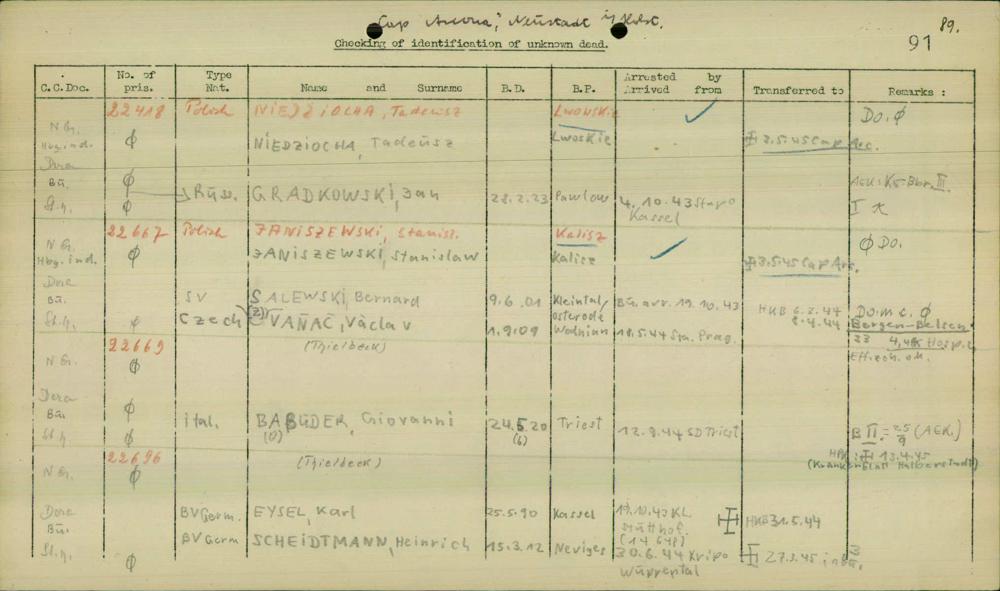 "Cap Arcona", Neustadt i/Holst.
89.
91
Checking of identification of unknown dead.
C.C.Doc. No. of pris. Type Nat. Name and Surname B.D. B.P. Arrested by Arrived from Transferred to Remarks :
22418 Polish NIEDZIOCHA, Tadeusz Lwowskie ✓ Do. ϕ
N G.
Hbg.ind. ϕ NIEDZIOCHA, Tadeusz Lwoskie 3.5.45 Cap Arc.
Dora
Bu. ϕ AEK: K5-Bbr. III
St.h. ϕ Russ. GRADKOWSKI, Jan 28.2.23 Pawlow 4.10.43 Stapo Kassel I x
22667 Polish JANISZEWSKI, Stanisł. Kalisz ✓ ϕ Do.
N G.
Hbg.ind. ϕ JANISZEWSKI, Stanislaw Kalisz 3.5.45 Cap Arc.
Dora
Bu. SV SALEWSKI, Bernard 9.6.01 Kleintal/Osterode Bu. arr. 19.10.43 HKB 6.2.44 Do. m.c. ϕ
St.h. ϕ Czech (Z) VAŇAČ, Václav 1.9.09 Wodnian 18.5.44 Sta. Prag. 8.4.44 Bergen-Belsen
22669 (Thielbeck) 23 4,45 Hosp.
N G. ϕ
Dora
Bu. ϕ ital. BABUDER, Giovanni 24.5.20 Triest
St.h. ϕ (O) (6) 12.9.44 SD Triest B II = 25/9 (AEK.)
22696 (Thielbeck) 13.4.45
N G. ϕ (Krankenblatt Halberstadt)
Dora BV Germ. EYSEL, Karl 25.5.90 Kassel 19.10.43 KL Stutthof. HKB 31.5.44
Bu. (14648)
St.h. ϕ BV Germ SCHEIDTMANN, Heinrich 15.3.12 Neviges 30.6.44 Kripo Wuppertal 27.3.45 in Bu.